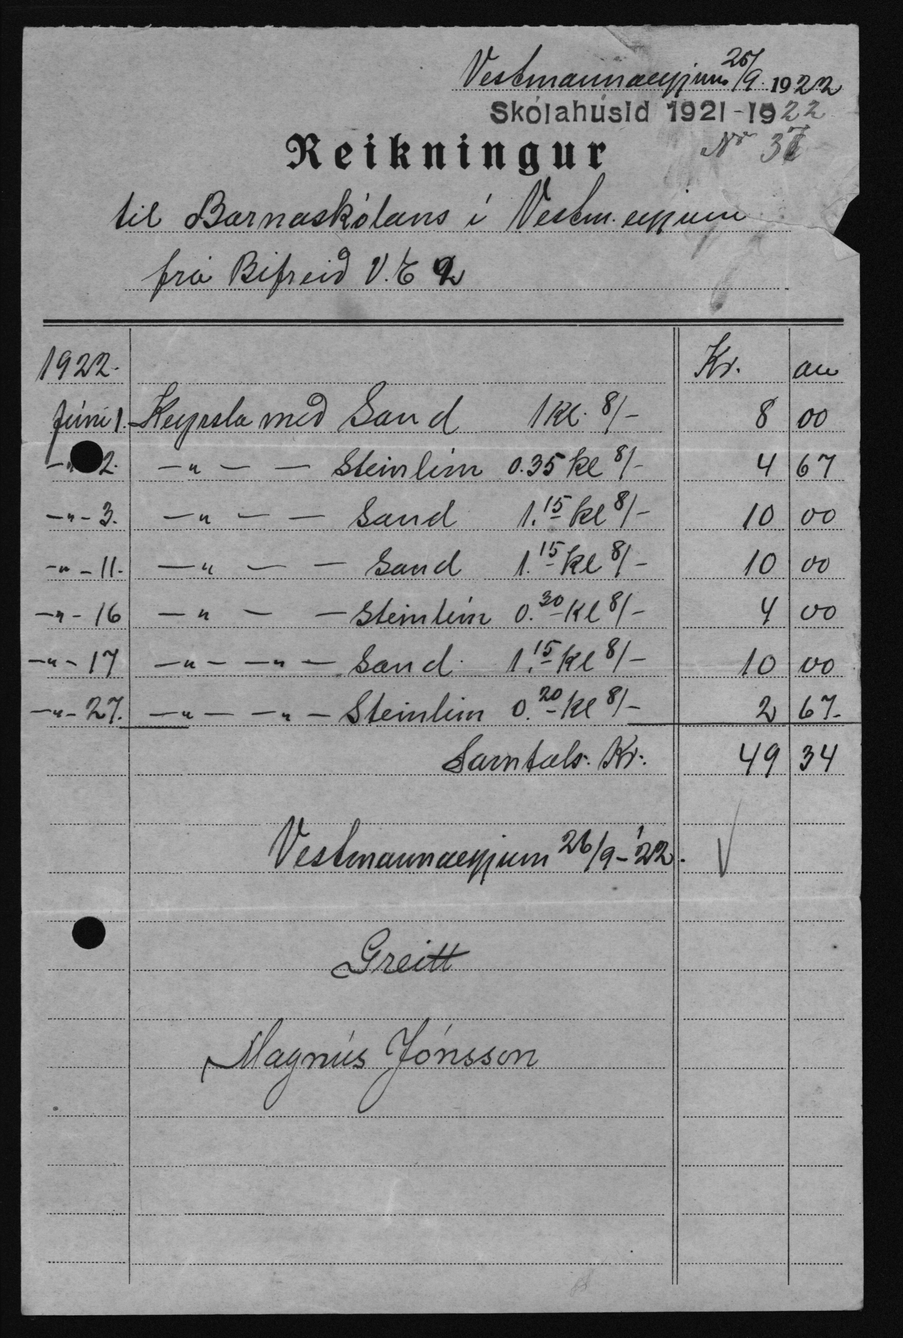 Vestmannaeyjum 25/9. 1922
Skólahúsið 1921-1922
Reikningur
Nr 37
til Barnaskólans í Vestm.eyjum
frá Bifreið V.E 2
1922. Kr. au
Júni 1. Keyrsla með Sand 1 kl. 8/- 8 00
-"- 2. -"- - - Steinlím 0.35 kl 8/- 4 67
-"- 3. -"- - - Sand 1.15 kl 8/- 10 00
-"- 11. -"- - - Sand 1.15 kl 8/- 10 00
-"- 16 -"- - - Steinlím 0.30 kl 8/- 4 00
-"- 17 -"- -"- - Sand 1.15 kl 8/- 10 00
-"- 27. -"- -"- - Steinlím 0.20 kl 8/- 2 67.
Samtals. Kr. 49 34
Vestmannaeyjum 26/9-'22.
Greitt
Magnús Jónsson